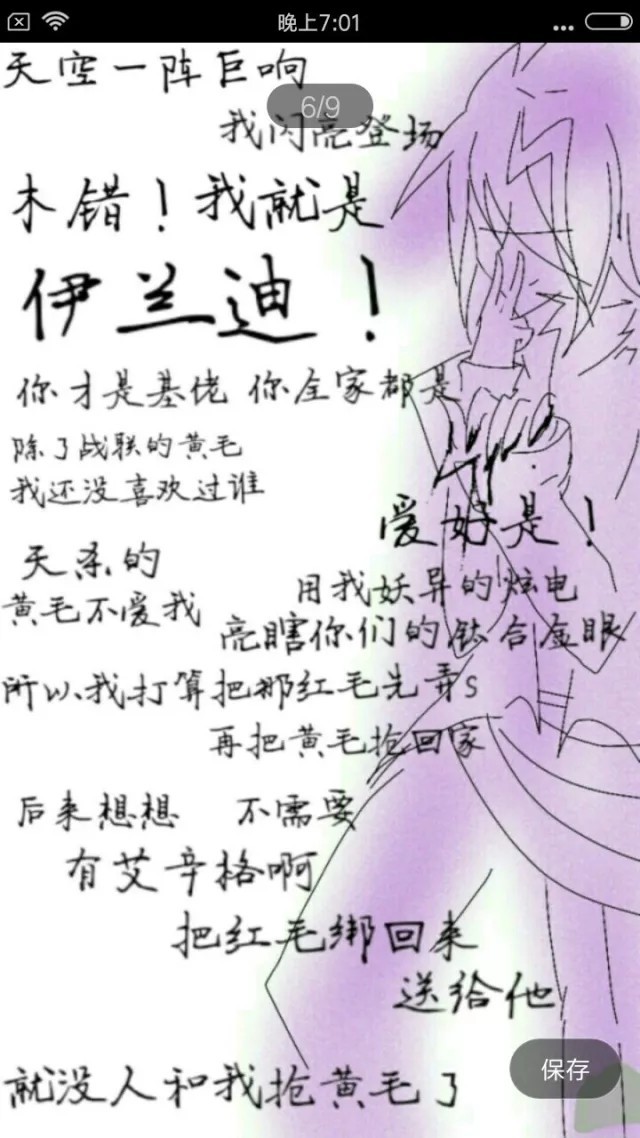 晚上7:01
天空一阵巨响
6/9
我闪亮登场
木错！我就是
伊兰迪！
你才是基佬 你全家都是
除了战联的黄毛
我还没喜欢过谁
爱好是！
天杀的
用我妖异的炫电
黄毛不爱我
亮瞎你们的钛合金眼
所以我打算把那红毛先弄s
再把黄毛抢回家
后来想想 不需要
有艾辛格啊
把红毛绑回来
送给他
保存
就没人和我抢黄毛了